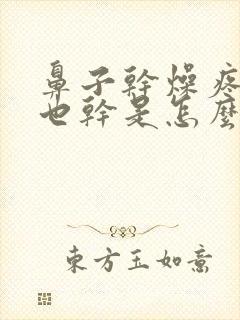 鼻子幹燥疼
也幹是怎麼
東方玉如意